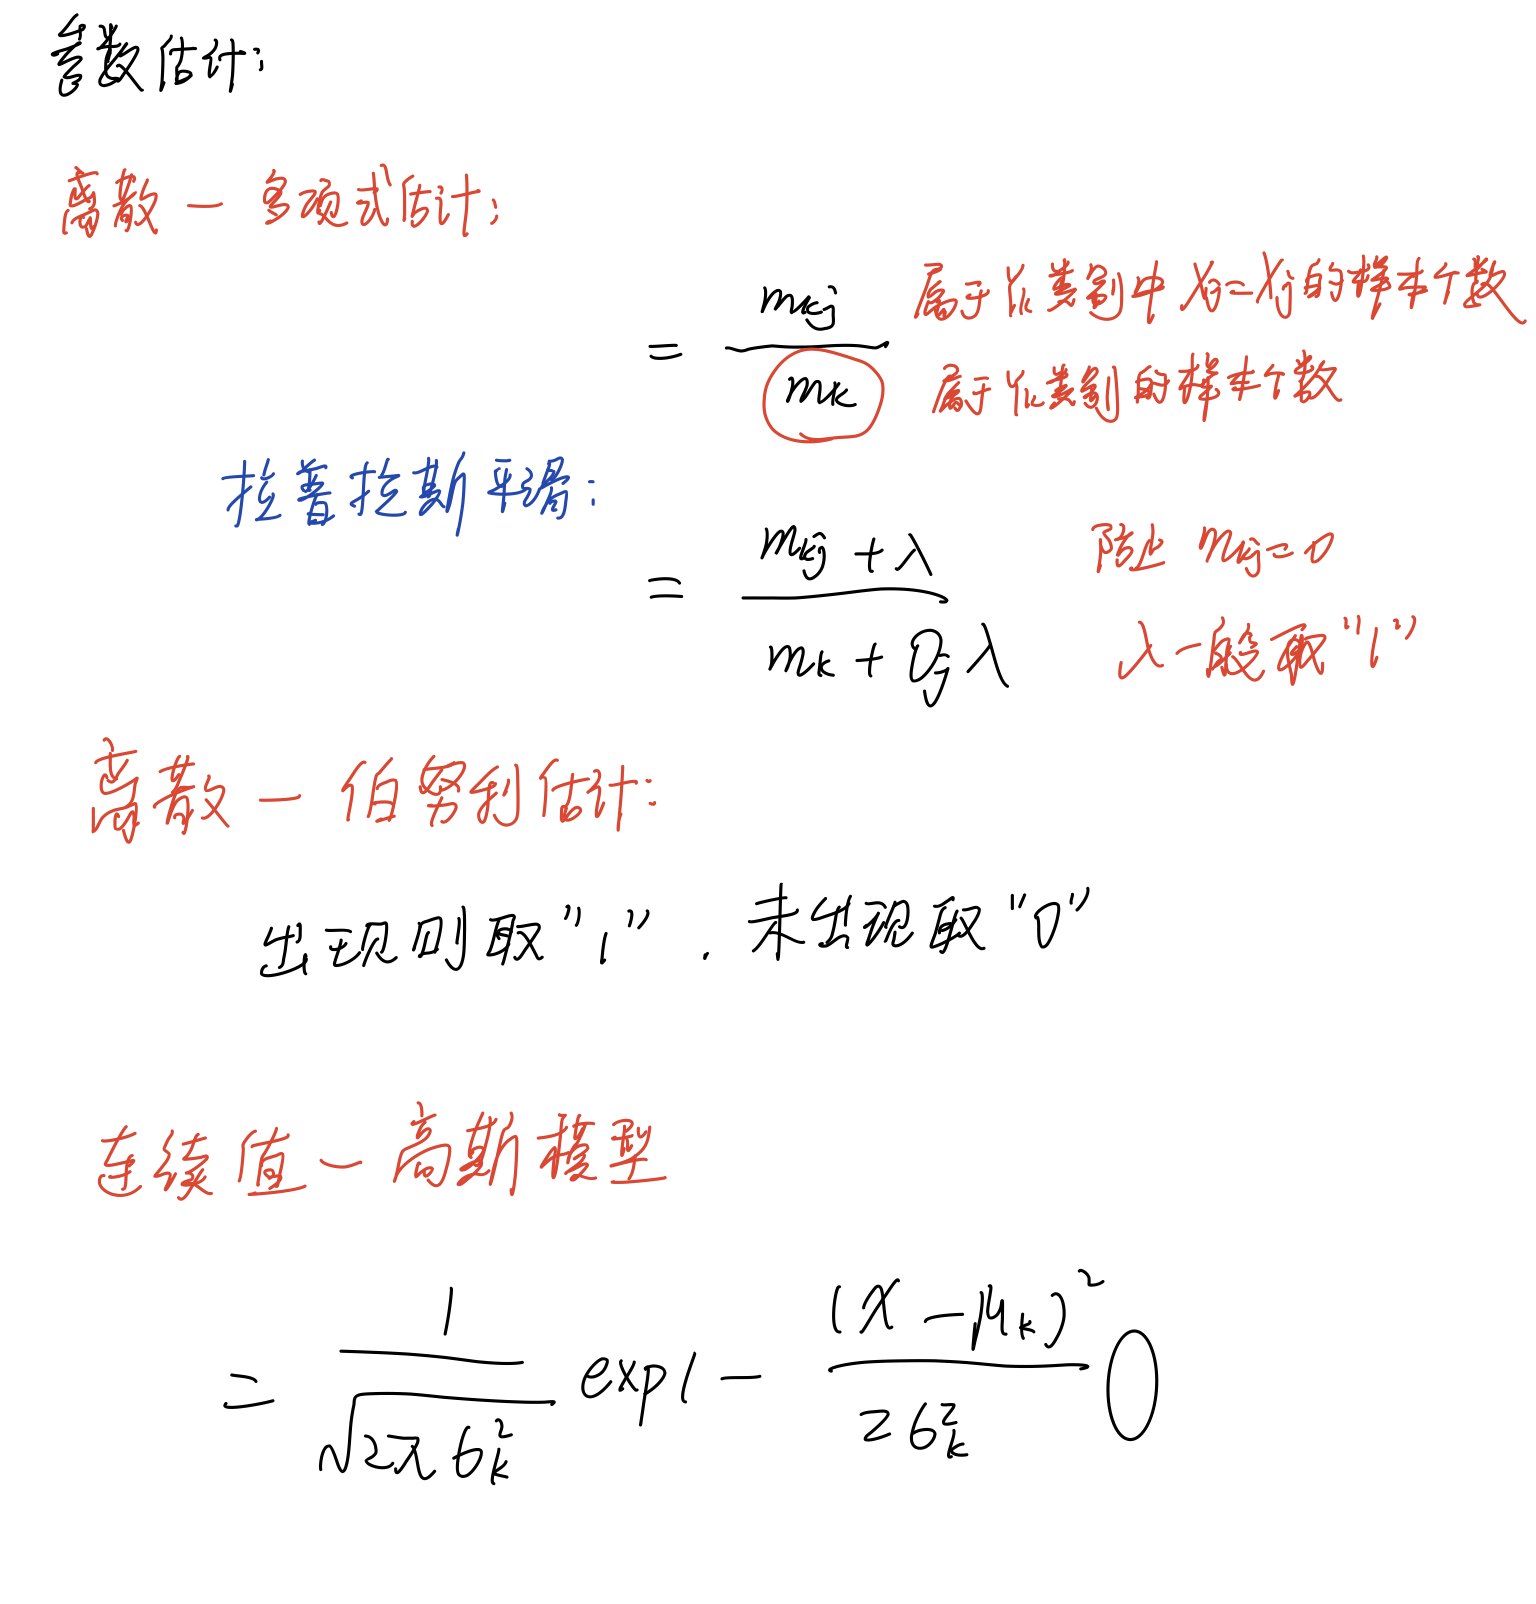 参数估计:
离散 — 多项式估计:
= mkj / mk 属于Yk类别中Xj=Xj的样本个数
属于Yk类别的样本个数
拉普拉斯平滑:
= (mkj + λ) / (mk + Ojλ) 防止 mkj=0
λ一般取"1"
离散 — 伯努利估计:
出现则取"1". 未出现取"0"
连续值 — 高斯模型
= 1 / √(2πσ²k) exp(- (x - μk)² / 2σ²k )